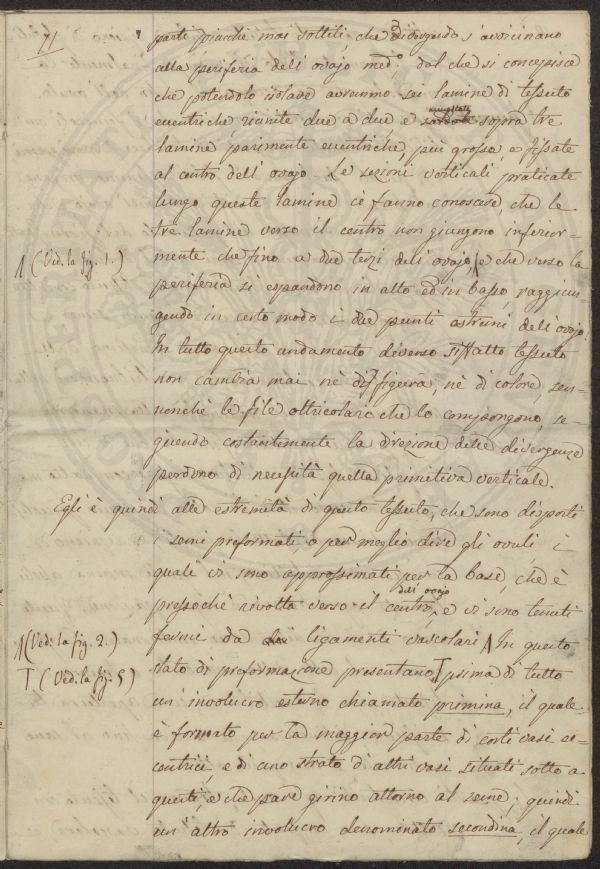 71
parti piucchè mai sottili, che divergendo s'avvicinano
alla periferia dell'ovajo med.º, dal che si concepisce
che potendolo isolare avremmo sei lamine di tessuto
eccentriche, riunite due a due, e innestate sopra tre
lamine parimente eccentriche, più grosse, e fissate
al centro dell'ovajo. Le sezioni verticali praticate
lungo queste lamine ci fanno conoscere, che le
tre lamine verso il centro non giungono inferior-
mente che fino a due terzi dell'ovajo, e che verso la
(Ved. la fig. 1.)
periferia si espandono in alto ed in basso, raggiun
gendo in certo modo i due punti estremi dell'ovajo.
In tutto questo andamento diverso siffatto tessuto
non cambia mai nè di figura, nè di colore, sen-
nonchè le file otricolari che lo compongono, se-
guendo costantemente la direzione delle divergenze
perdono di necessità quella primitiva verticale.
Egli è quindi alle estremità di questo tessuto, che sono disposti
i semi preformati, o per meglio dire gli ovuli, i
quali vi sono approssimati per la base, che è
pressochè rivolta verso il centro dell'ovajo, e vi sono tenuti
fermi da ligamenti vascolari. In questo
(Ved. la fig. 2.)
stato di preformazione presentano prima di tutto
T. (Ved. la fig. 5)
un involucro esterno chiamato primina, il quale
è formato per la maggior parte di corti vasi ec-
centrici, e di uno strato di altri vasi situati sotto a
questi, e che pare girino attorno al seme; quindi
un altro involucro denominato secondina, il quale